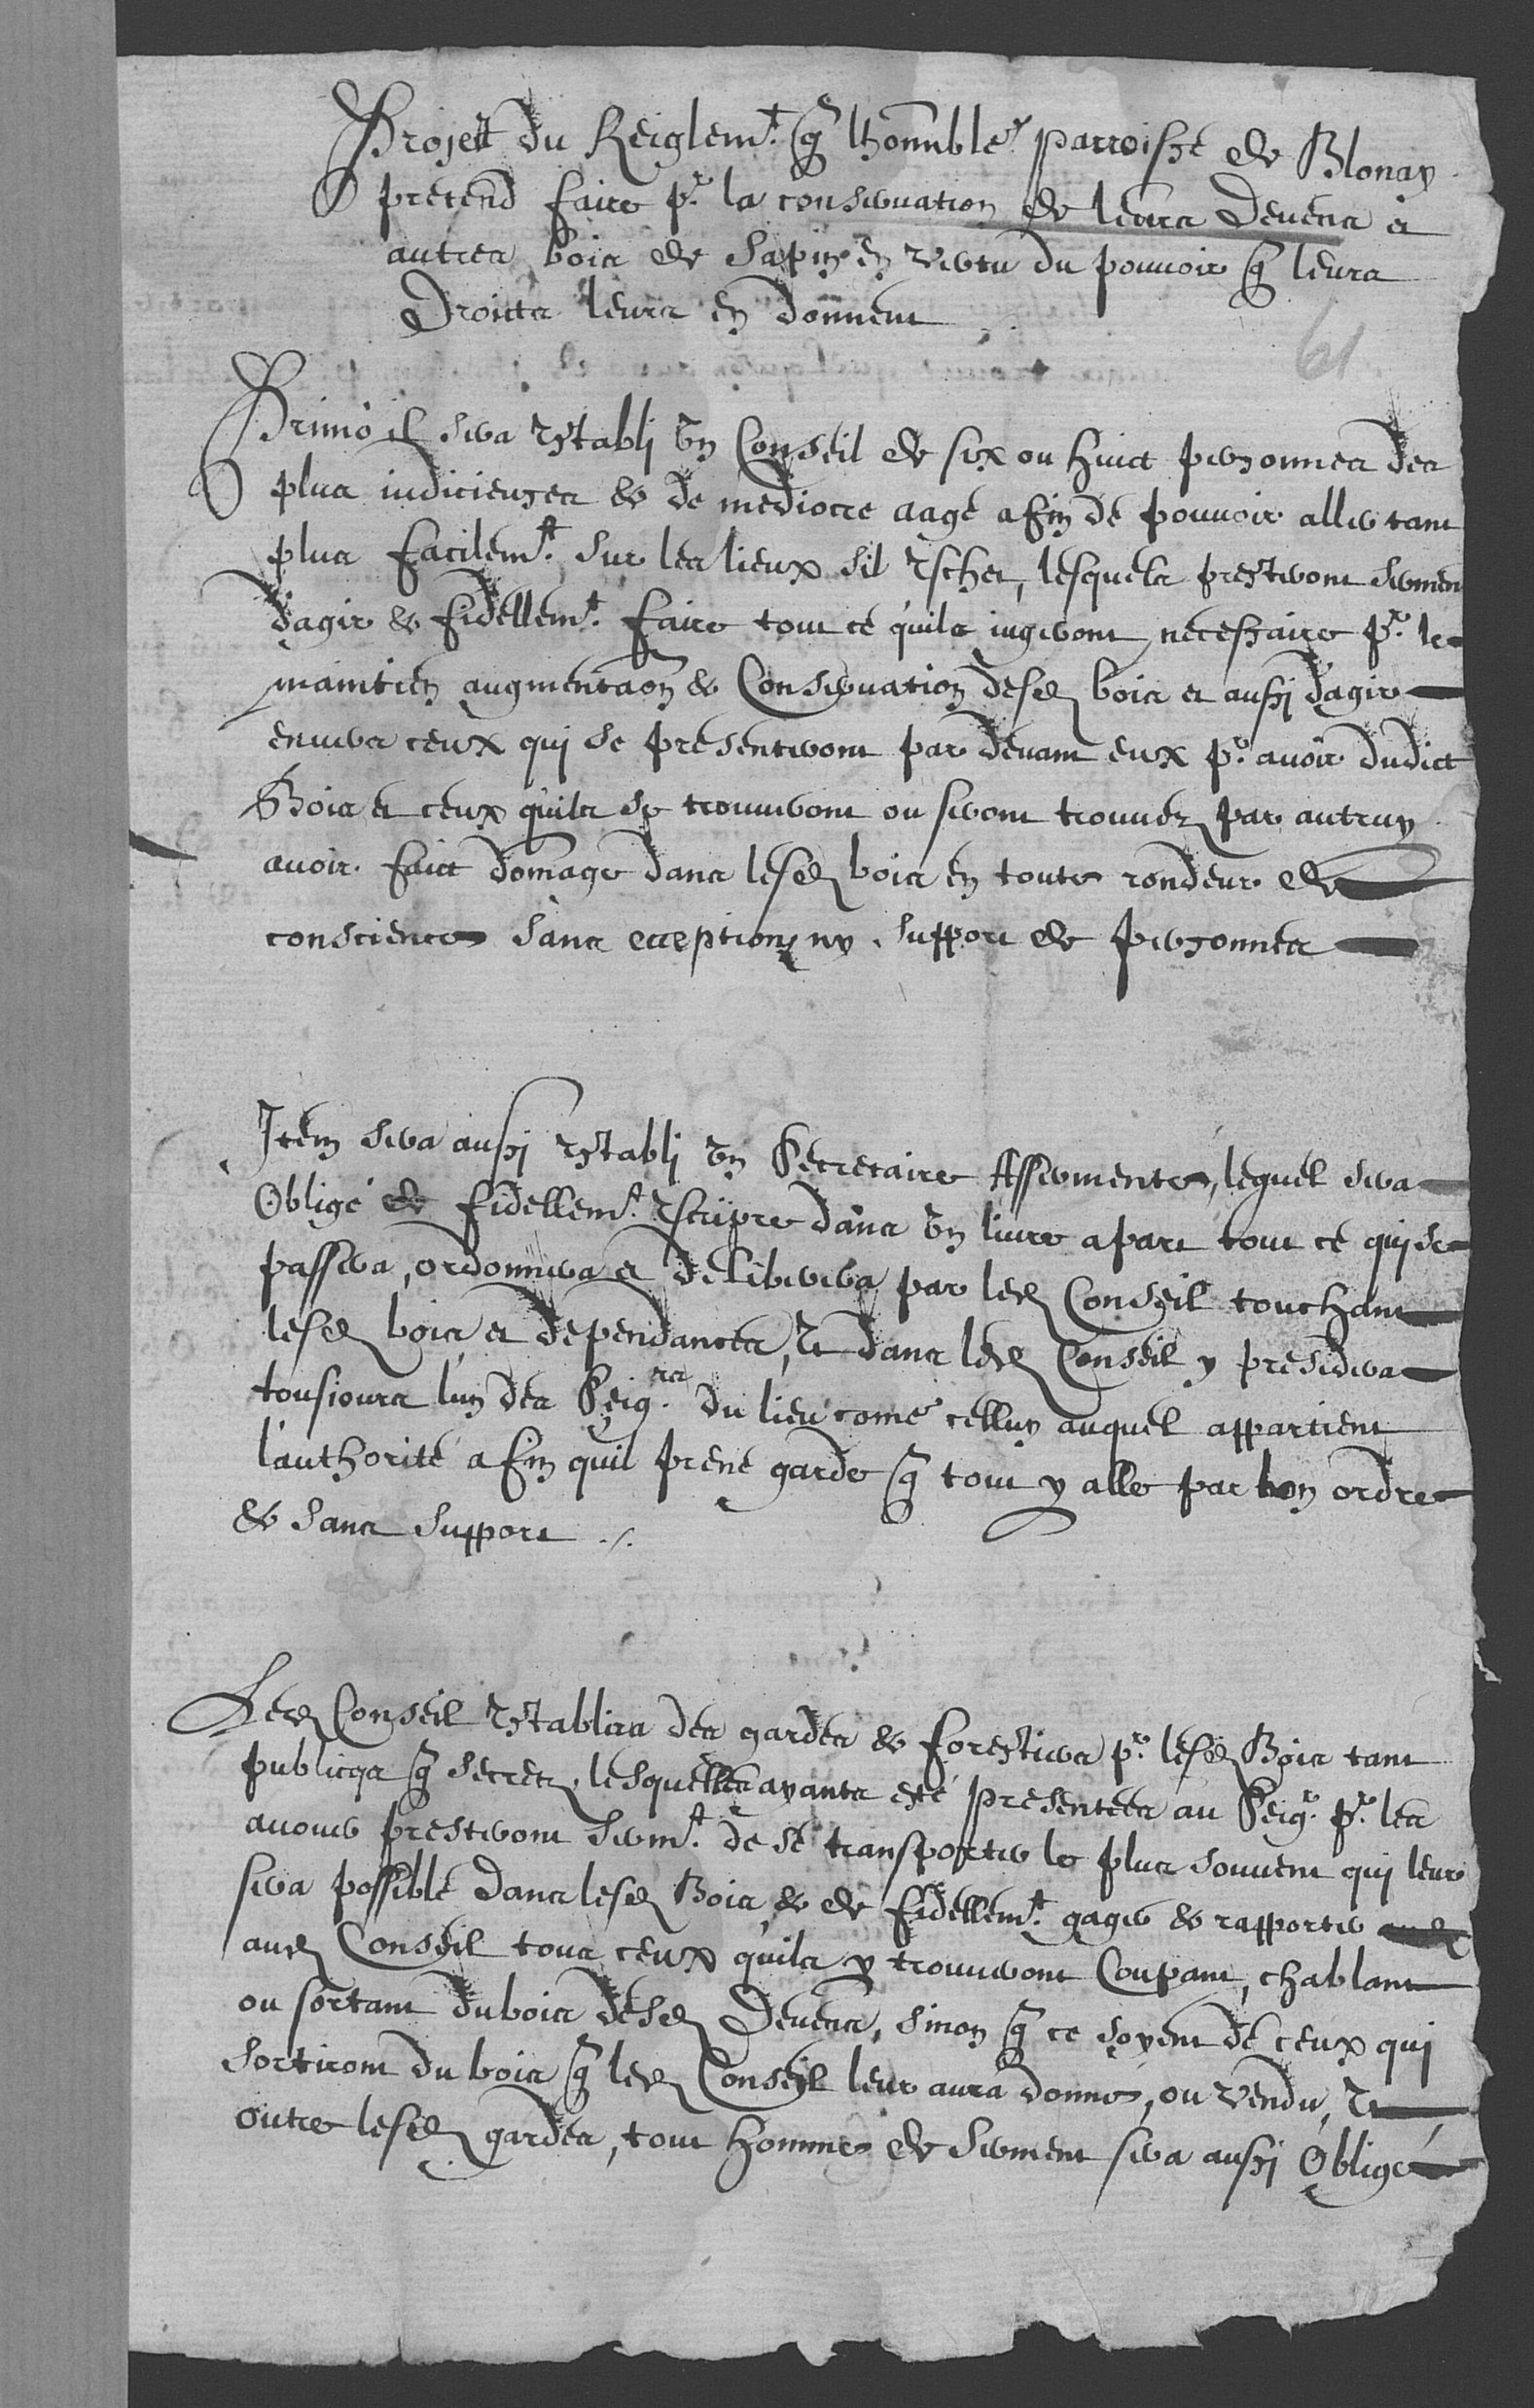 Projett du Reiglem.t q̃ lhonnble parroisse de Blonay
pretend faire p.r la conservation de leurs Devens et
autres bois de Sapin en vertu du pouvoir q̃ leurs
Droitts leurs en donnent
61
Primo il sera establi un Conseil de six ou huict personnes des
plus iudicieuses & de mediocre aage afin de pouvoir aller tant
plus facilem.t sur les lieux sil eschet, lesquels presteront sermen
d'agir & fidellem.t faire tout ce quils iugeront necessaire p.r le
maintien augmentaōn & Conservation desd. bois et aussi d'agir
envers ceux qui se presenteront par devant eux p.r avoir dudict
Bois et ceux quils se trouveront ou seront trouvez par autruy
avoir faict domage dans lesd. bois en toute rondeur de
conscience sans eception ny support de personnes
Item sera aussi establi un Secretaire Assermenté, lequel sera
Obligé de fidellem.t Escripre dans un livre apart tout ce qui se
passera, ordonnera et deliberera par led. Conseil touchant
lesd. bois et dependances, Et dans led. Conseil y presidera
tousiours lun des Seig.rs du lieu come celluy auquel appartient
l'authorité afin quil prene garde q̃ tout y alle par bon ordre
& sans support ./.
Led. Conseil establira des gardes & forestiers p.r lesd. Bois tant
publicqs q̃ secrets, lesquelles ayants esté presentées au Seig.r p.r les
avouer presteront serm.t de se transporter le plus souvent qui leur
sera possible dans lesd. Bois & de fidellem.t gager & rapporter
aud. Conseil tous ceux quils y trouveront Coupant, chablant
ou sortant du bois desd. Devens, sinon q̃ ce soyent de ceux qui
sortiront du bois q̃ led. Conseil leur aura donné, ou vendu, Et
outre lesd. gardes, tout homme de serment sera aussi Obligé